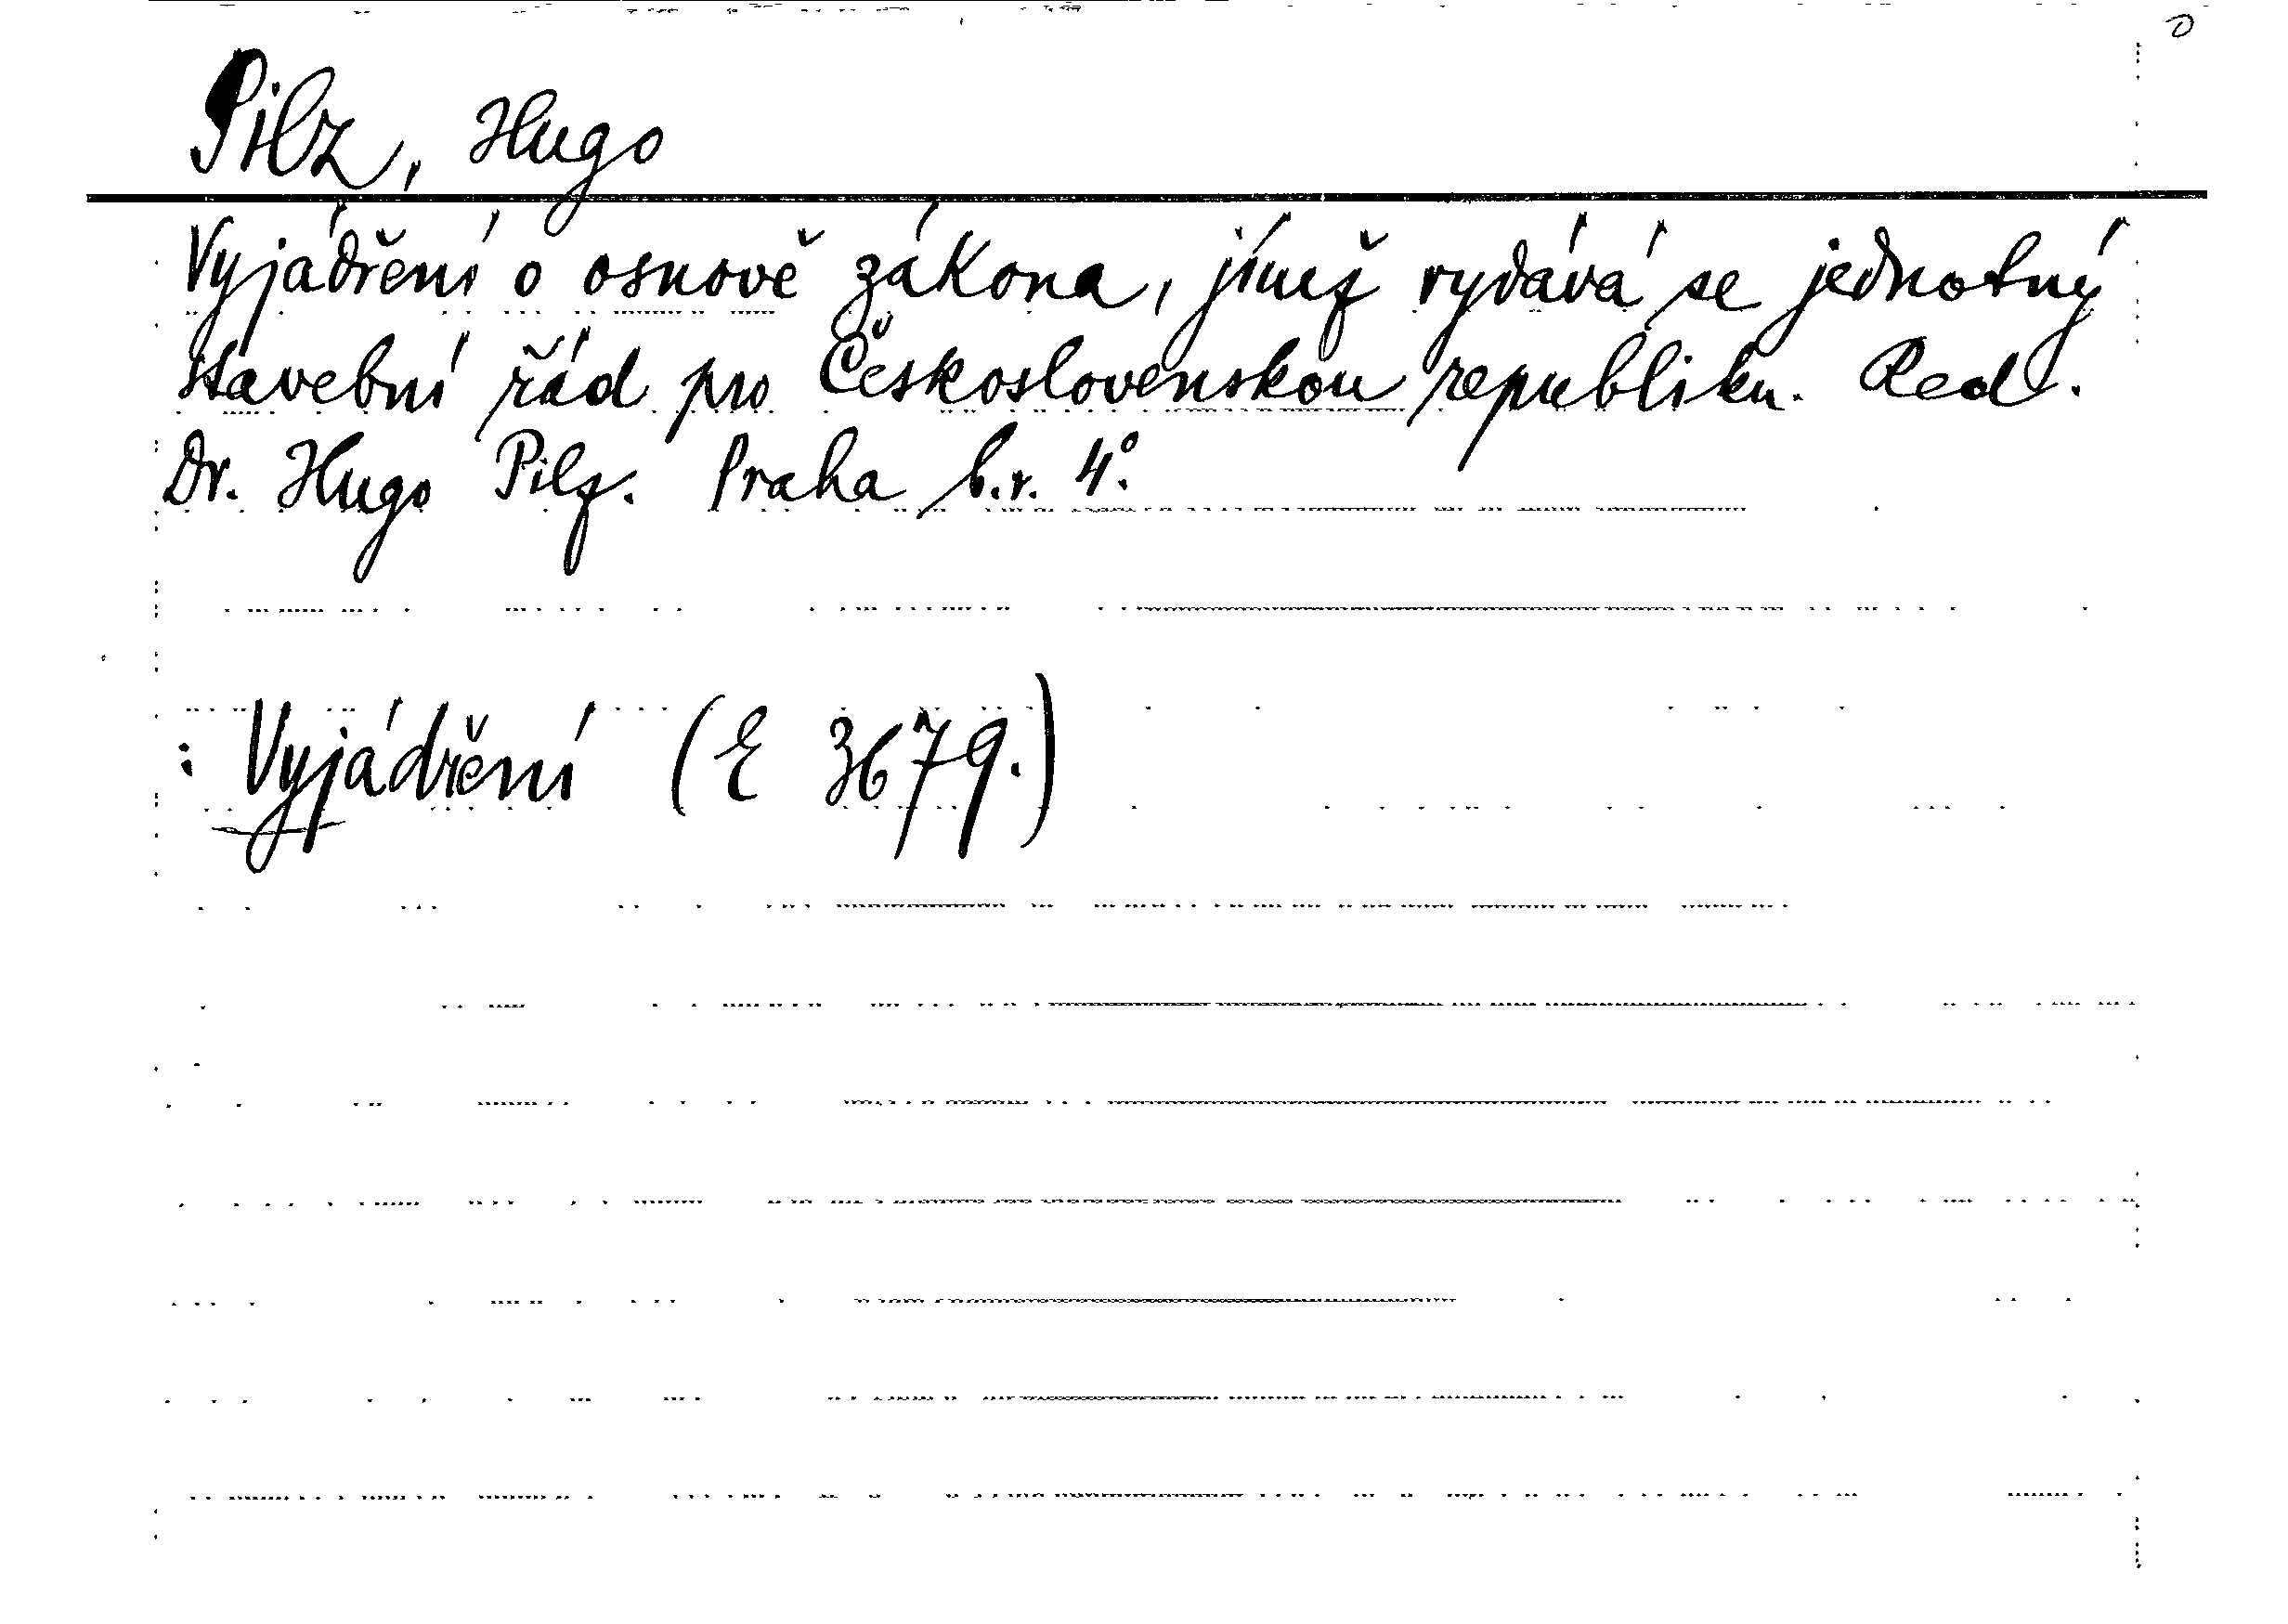 Pilz, Hugo
Vyjádření o osnově zákona, jímž vydává se jednotný
stavební řád pro Československou republiku. Red.
Dr. Hugo Pilz. Praha b.r. 4°.
: Vyjádření (E 3679.)